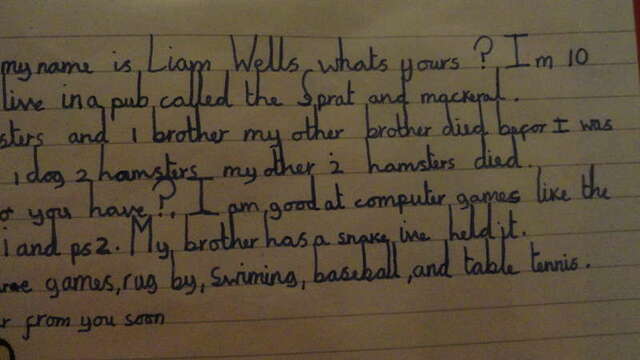 my name is Liam Wells whats yours? Im 10
live in a pub called the Sprat and mackeral.
sters and 1 brother my other brother died befor I was
1 dog 2 hamsters my other 2 hamsters died.
you have?. I am good at computer games like the
i and ps2. My brother has a snake ive held it.
games, rug by, Swiming, baseball, and table tennis.
r from you soon